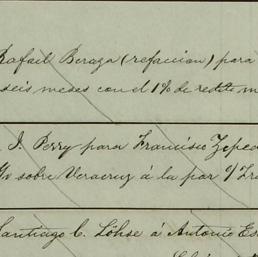 Rafael Beraza (refaccion) para
seis meses con el 1% de redito m
J. Perry para Francisco Zeped
sobre Veracruz á la par
Santiago C. Löhse á Antonio Es